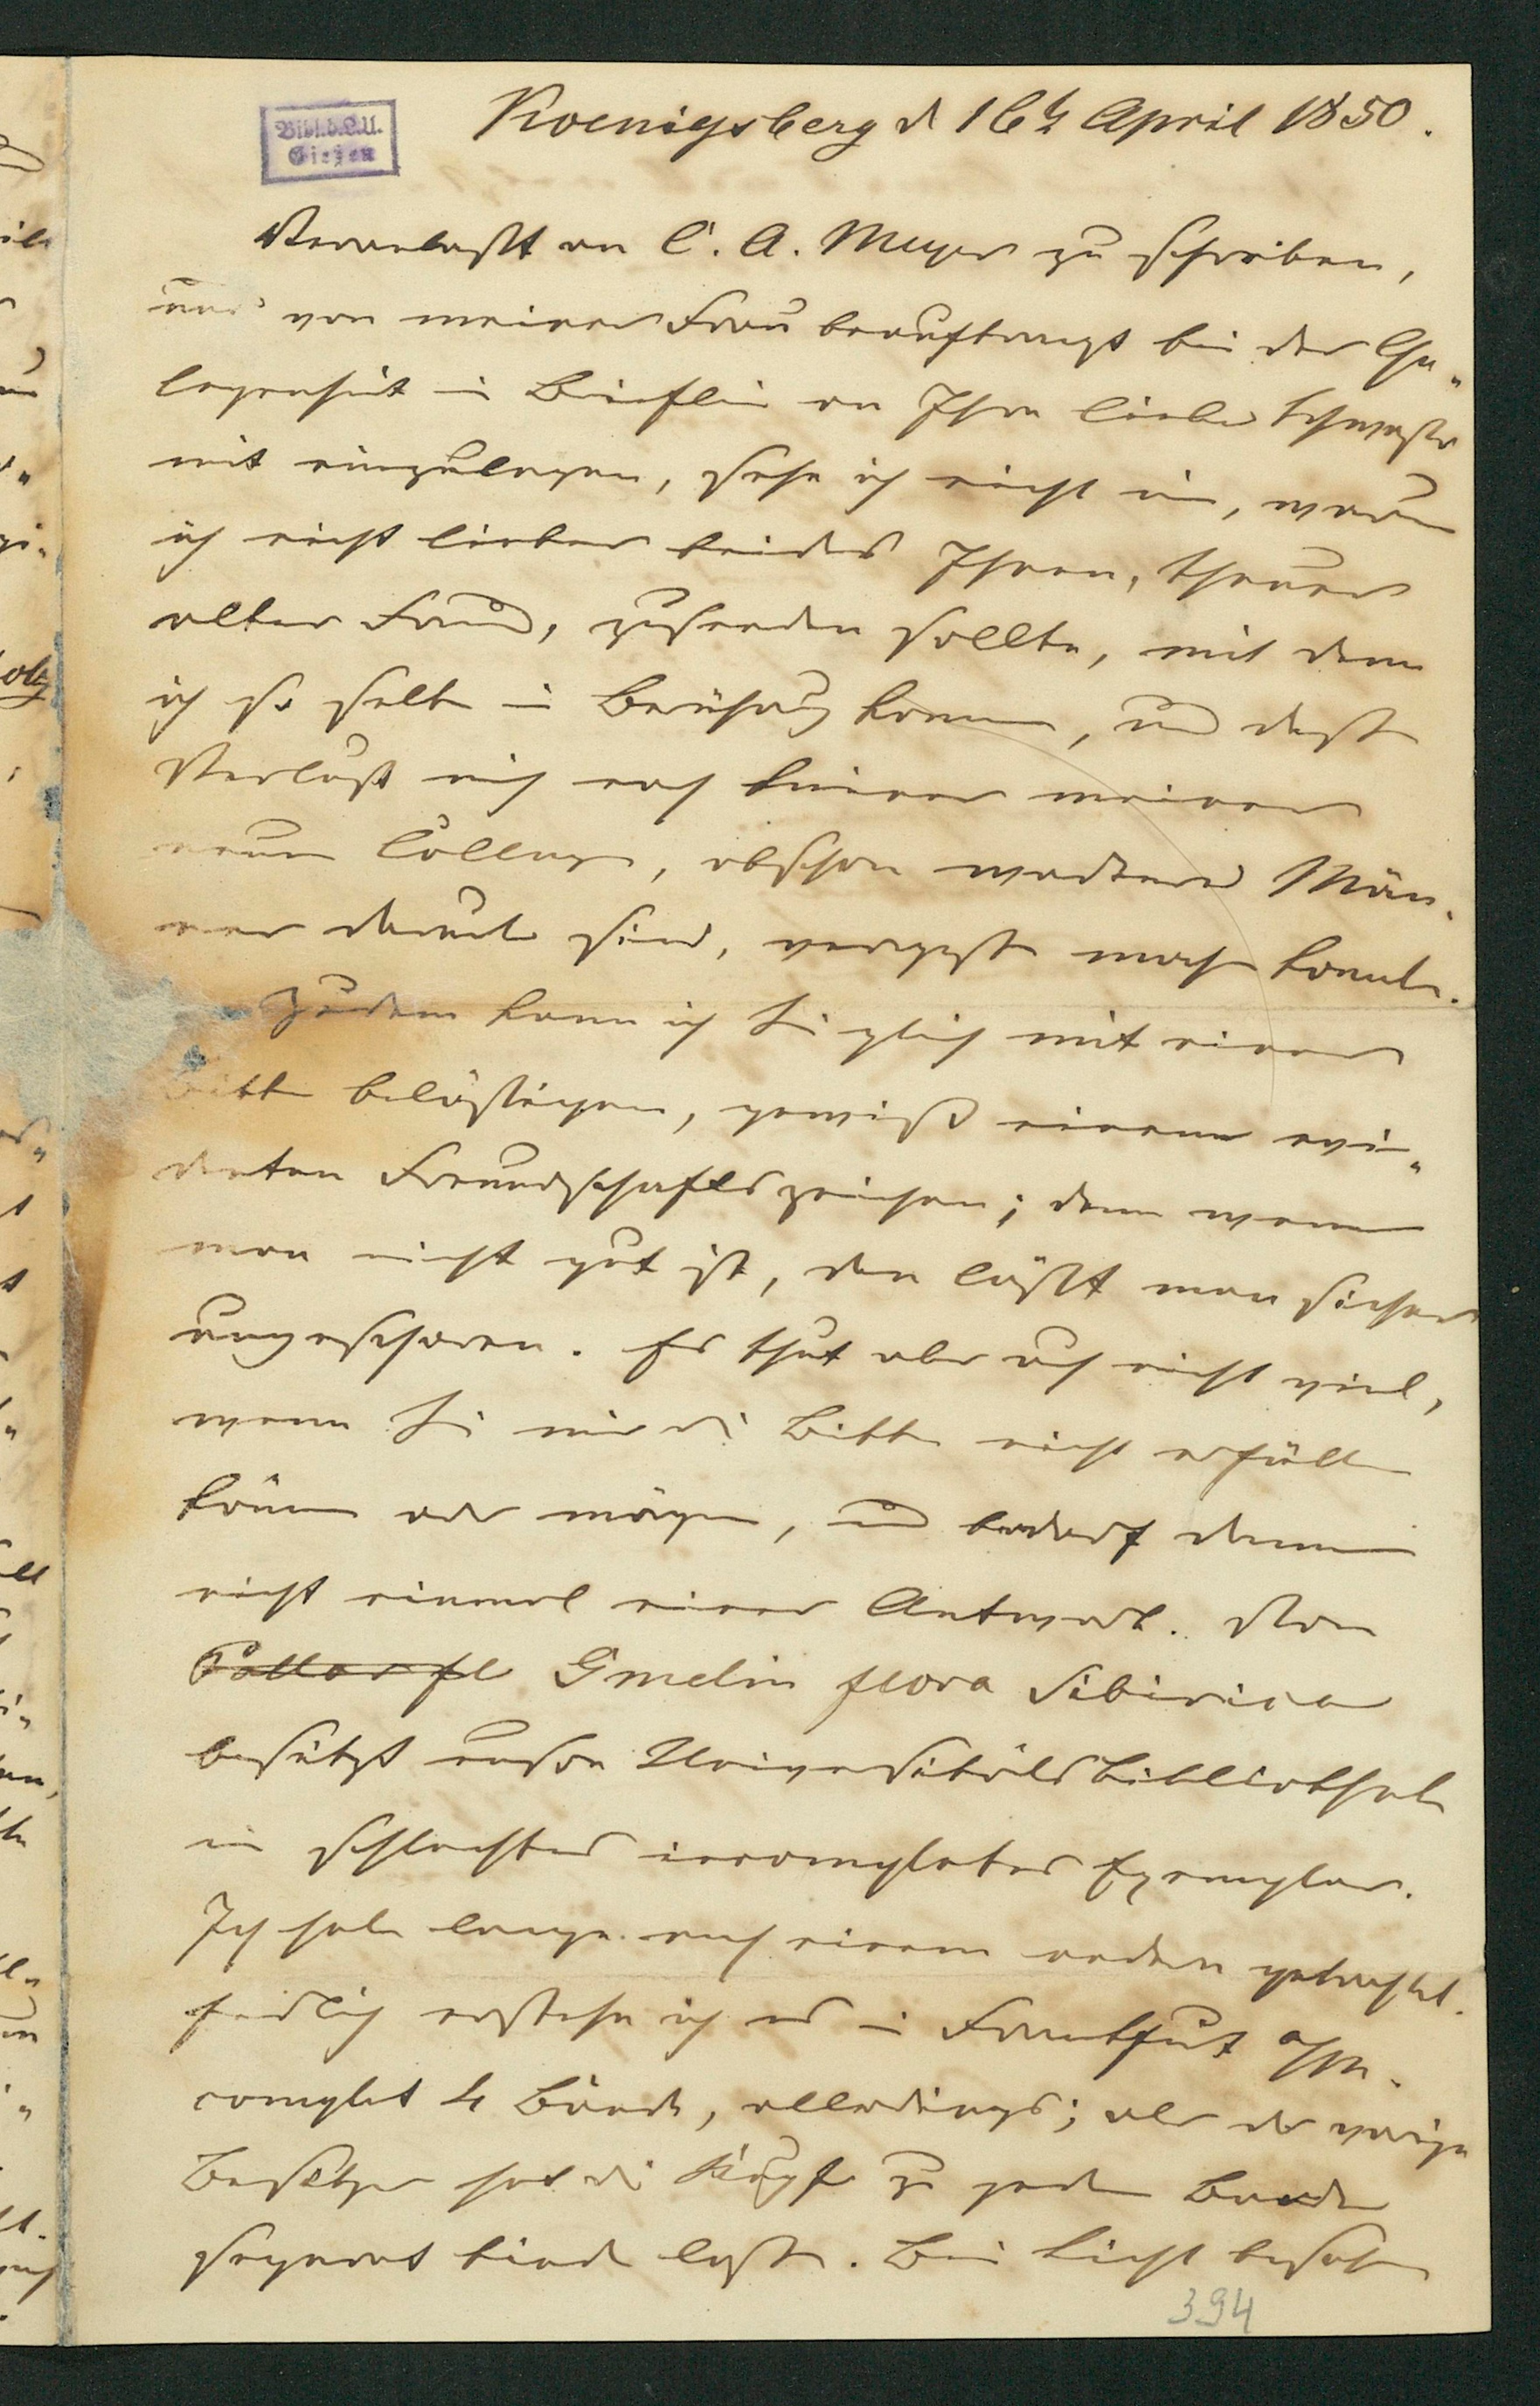 Bibl. d. L. U.
Giezen
Koenigsberg d 16t April 1850.
Veranlaßt an C. A. Meyer zu schreiben,
und von meiner Frau beauftragt bei der Ge„
legenheit ein Brieflein an Ihre liebe Schwester
mit einzulegen, sehe ich nicht ein, warum
ich nicht lieber beides Ihnen, theurer
alter Freund, zusenden sollte, mit dem
ich so selten in Berührung komme, und dessen
Verlust mich noch keiner meiner
neuen Collegen, obschon wackere Män„
ner darunter sind, vergessen machen konnte.
Zudem kann ich Sie gleich mit einer
Bitte belästigen, gewiß einem evi„
denten Freundschaftszeichen; denn wem
man nicht gut ist, den läßt man sicher
ungeschoren. Es thut aber auch nicht viel,
wenn Sie mir die Bitte nicht erfüllen
können oder mögen, und bedarf dann
nicht einmal einer Antwort. Von
Gmelin flora Sibirica
besitzt unsre Universitätsbibliothek
ein schlechtes incompletes Exemplar.
Ich habe lange nach einem andern getrachtet.
Endlich erstehe ich es in Frankfurt a/M.
complet 4 Bände, allerdings; aber der vorige
Besitzer hat die Kupfer zu jedem Bande
separat binden lassen. Bei Licht besehen
394